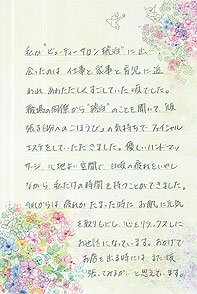 私が"ビューティーサロン琥珀"に出
会ったのは 仕事と家事と育児に追
われ あわただしくすごしていた頃でした。
職場の同僚から"琥珀"のことを聞いて、"頑
張る自分へのごほうび"の気持ちでフェイシャル
エステをしていただきました。優しいハンドマッ
サージ、心地よい空間で 日頃の疲れをいやし
ながら 私だけの時間を持つことができました。
それからは 疲れがたまった時に お肌に元気
を取りもどし 心もリラックスしに
お世話になっています。おかげで
お店を出る時には "また頑
張ってみるか"と思えています。